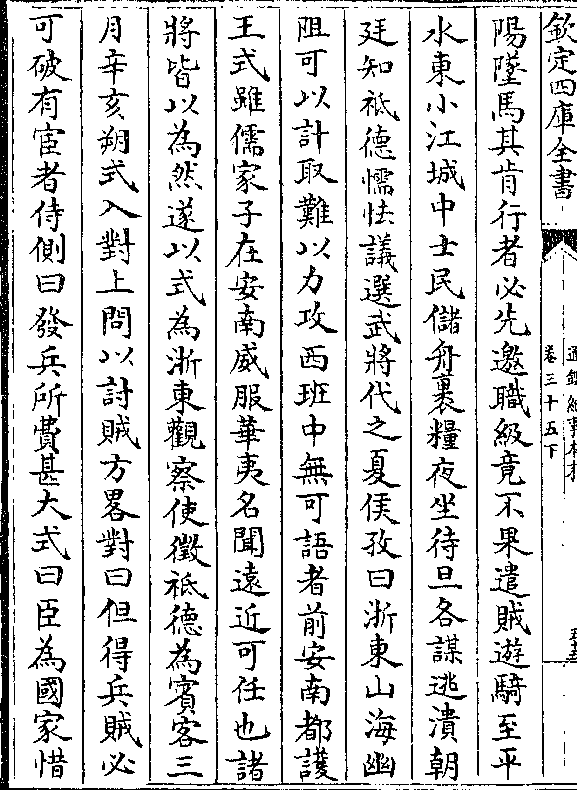 欽定四庫全書
通鑑紀事本末
卷三十五下
陽墜馬其肯行者必先邀職級竟不果遣賊遊騎至平
水東小江城中士民儲舟裹糧夜坐待旦各謀逃潰朝
廷知祗德懦怯議選武將代之夏侯孜曰浙東山海幽
阻可以計取難以力攻西班中無可語者前安南都護
王式雖儒家子在安南威服華夷名聞遠近可任也諸
將皆以為然遂以式為浙東觀察使徵祗德為賓客三
月辛亥朔式入對上問以討賊方畧對曰但得兵賊必
可破有宦者侍側曰發兵所費甚大式曰臣為國家惜